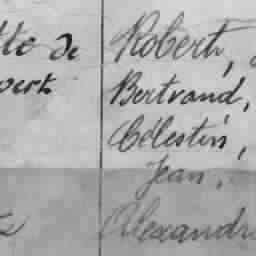 de
Robert,
Bertrand,
Célestin,
Jean,
Alexandre